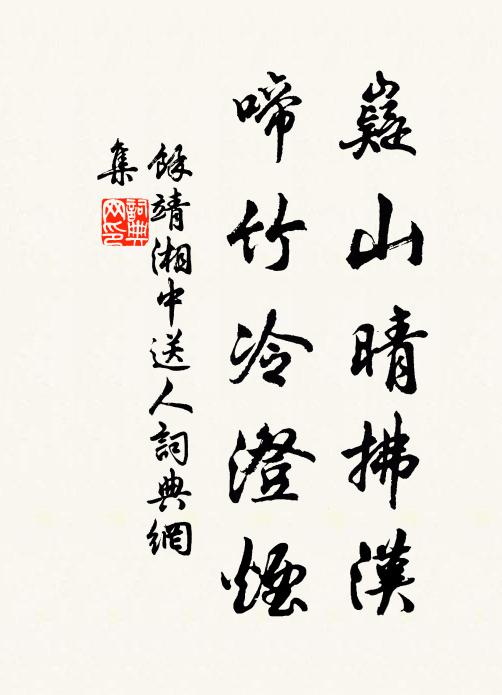 嶷山晴拂漢
啼竹冷澄煙
餘靖湘中送人詞典網
集
詞典
网印